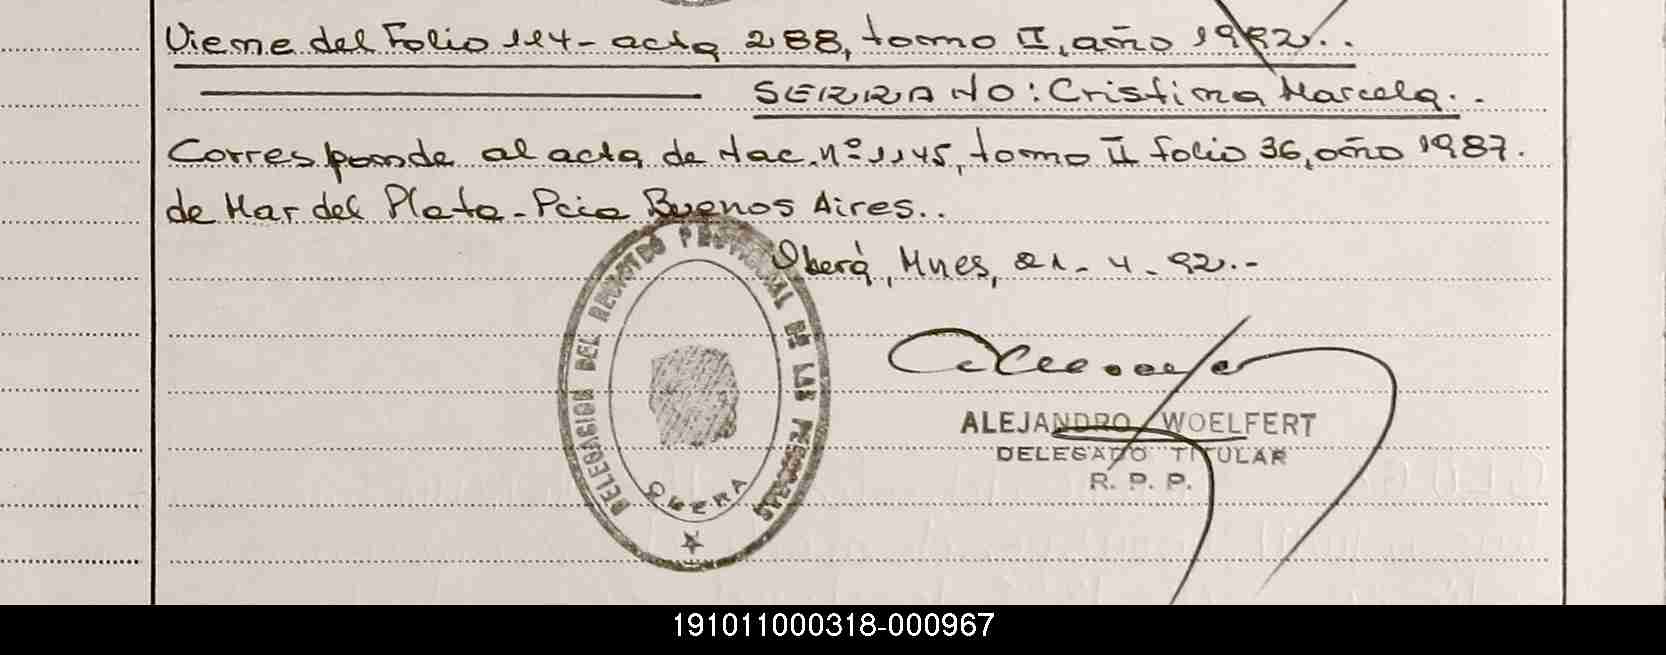 Viene del Folio 114- acta 288, tomo II, año 1982..
SERRANO: Cristina Marcela..
Corresponde al acta de Nac. nº 1145, tomo II folio 36, año 1987.
de Mar del Plata - Pcia Buenos Aires..
Oberá, Mnes, 21 - 4 - 92.-
DELEGACION DEL REGISTRO PROVINCIAL DE LAS PERSONAS
OBERA
ALEJANDRO WOELFERT
DELEGADO TITULAR
R. P. P.
191011000318-000967